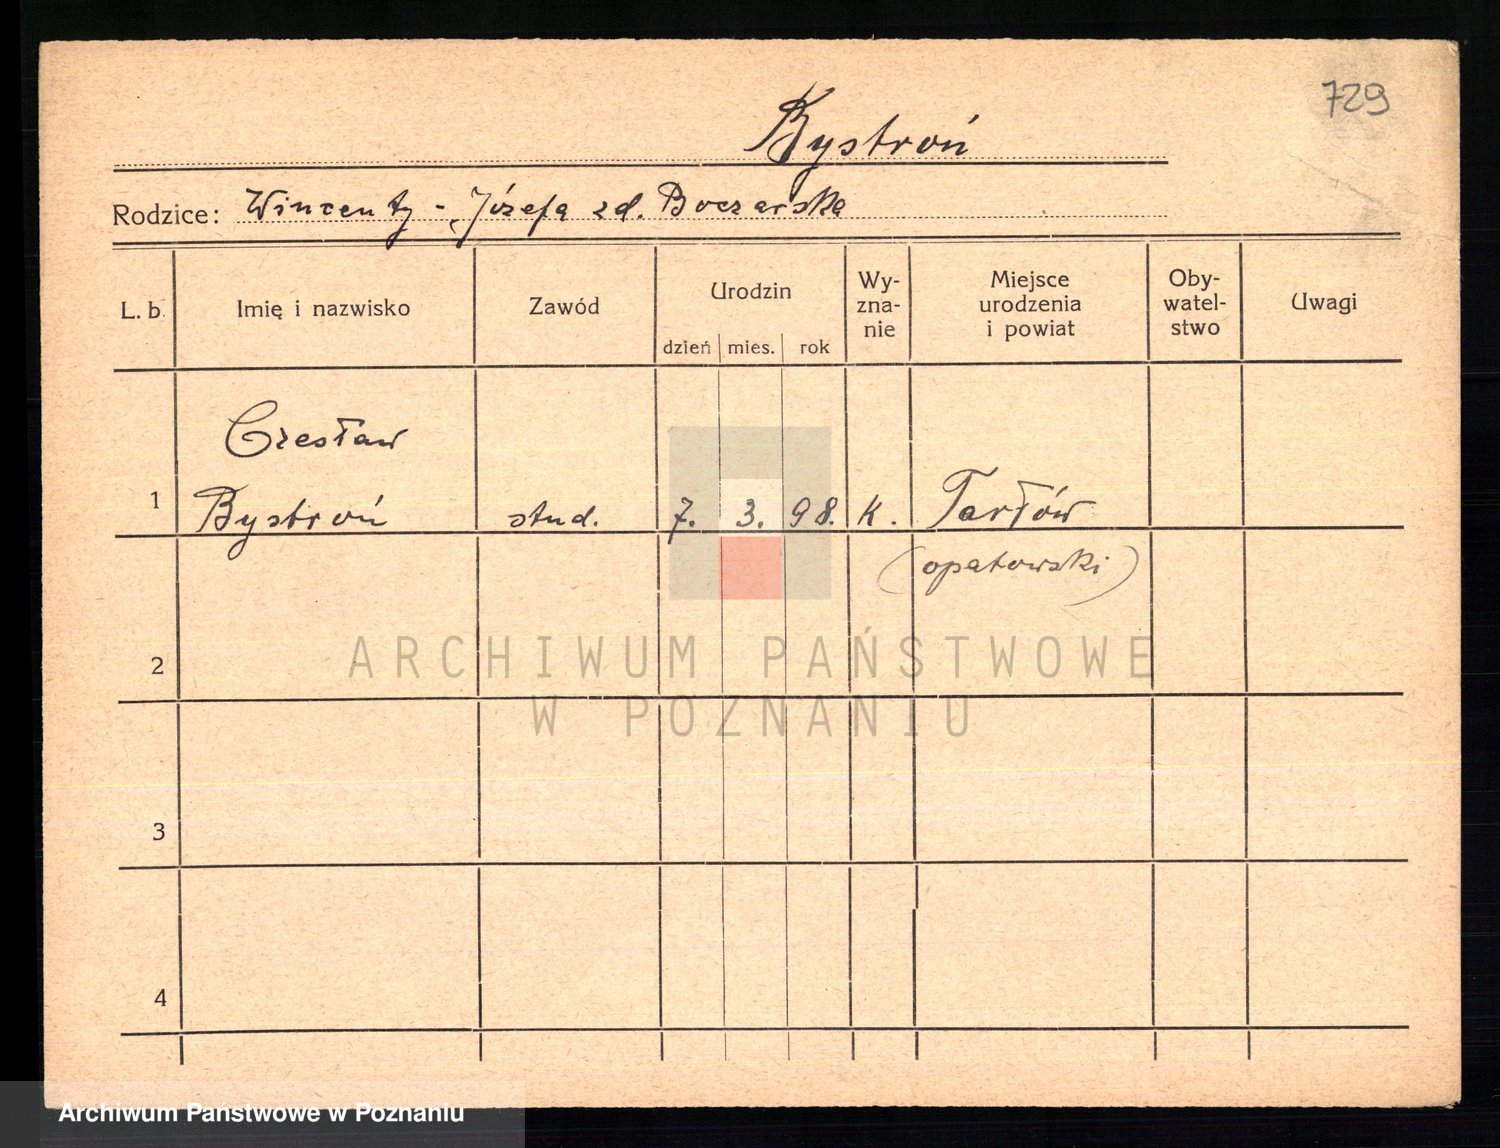 729
Bystroń
Rodzice: Wincenty - Józefa zd. Boczarska
L. b.
Imię i nazwisko
Zawód
Urodzin
dzień mies. rok
Wy-
zna-
nie
Miejsce
urodzenia
i powiat
Oby-
watel-
stwo
Uwagi
Czesław
1 Bystroń stud. 7. 3. 98. K. Tarłów
(opatowski)
2
3
4
ARCHIWUM PAŃSTWOWE
W POZNANIU
Archiwum Państwowe w Poznaniu